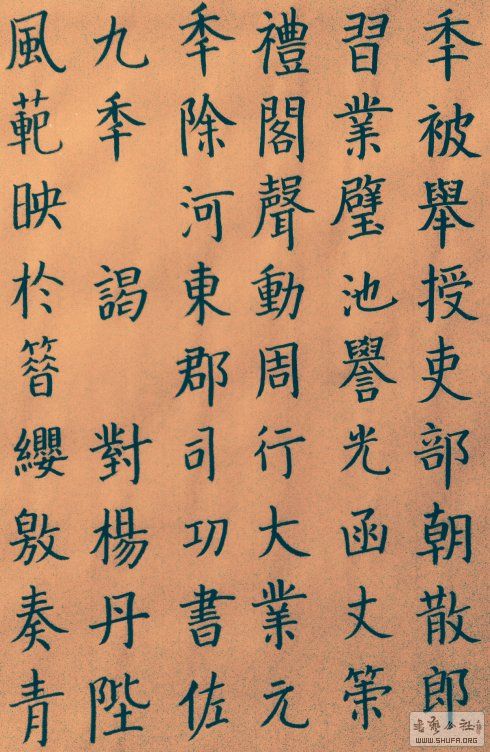 秊被舉授吏部朝散郎
習業璧池譽光函丈策
禮閣聲動周行大業元
秊除河東郡司功書佐
九秊 謁 對楊丹陛
風範映於簪纓敷奏青
書藝公社
WWW.SHUFA.ORG